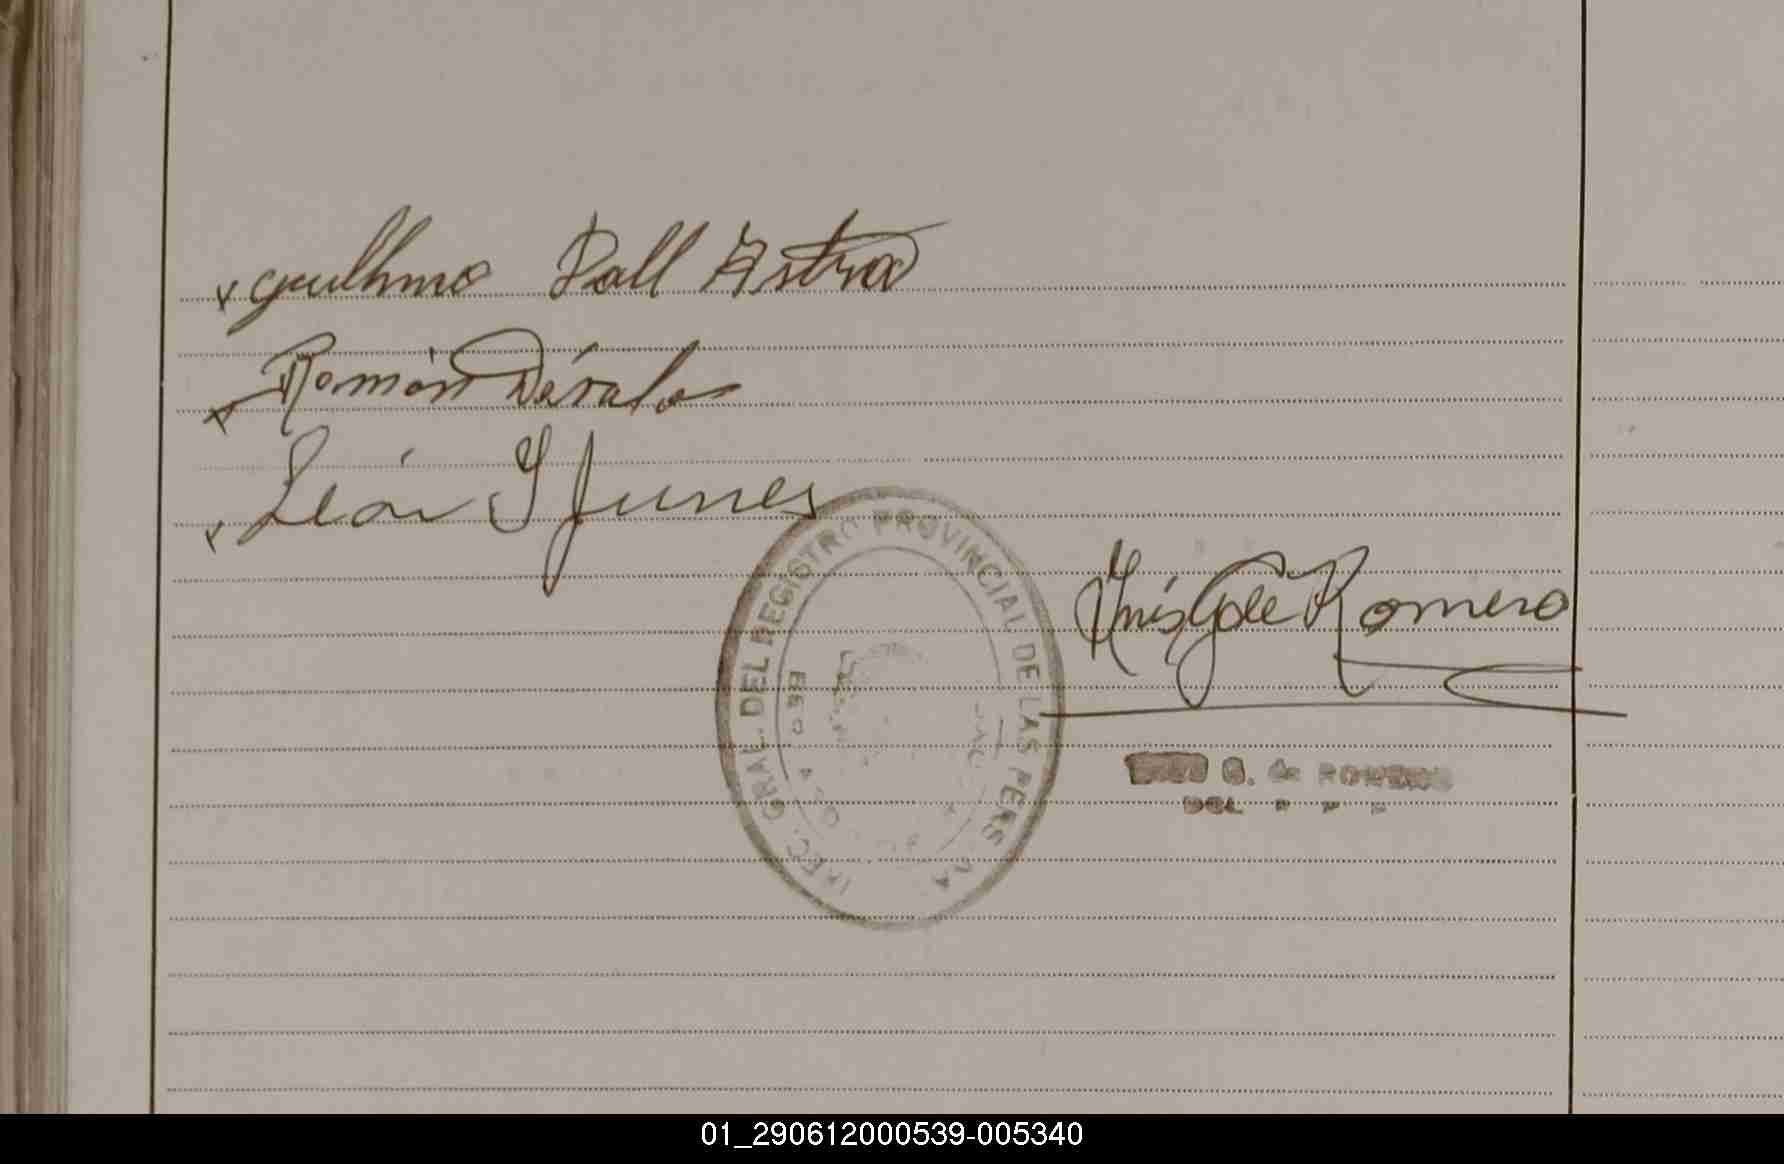 Guilhmo Dall Astra
Román Dávalos
León Y Funes
INEC. GRAL. DEL REGISTRO PROVINCIAL DE LAS PERS
Inés G de Romero
G. de ROMERO
DEL
01_290612000539-005340